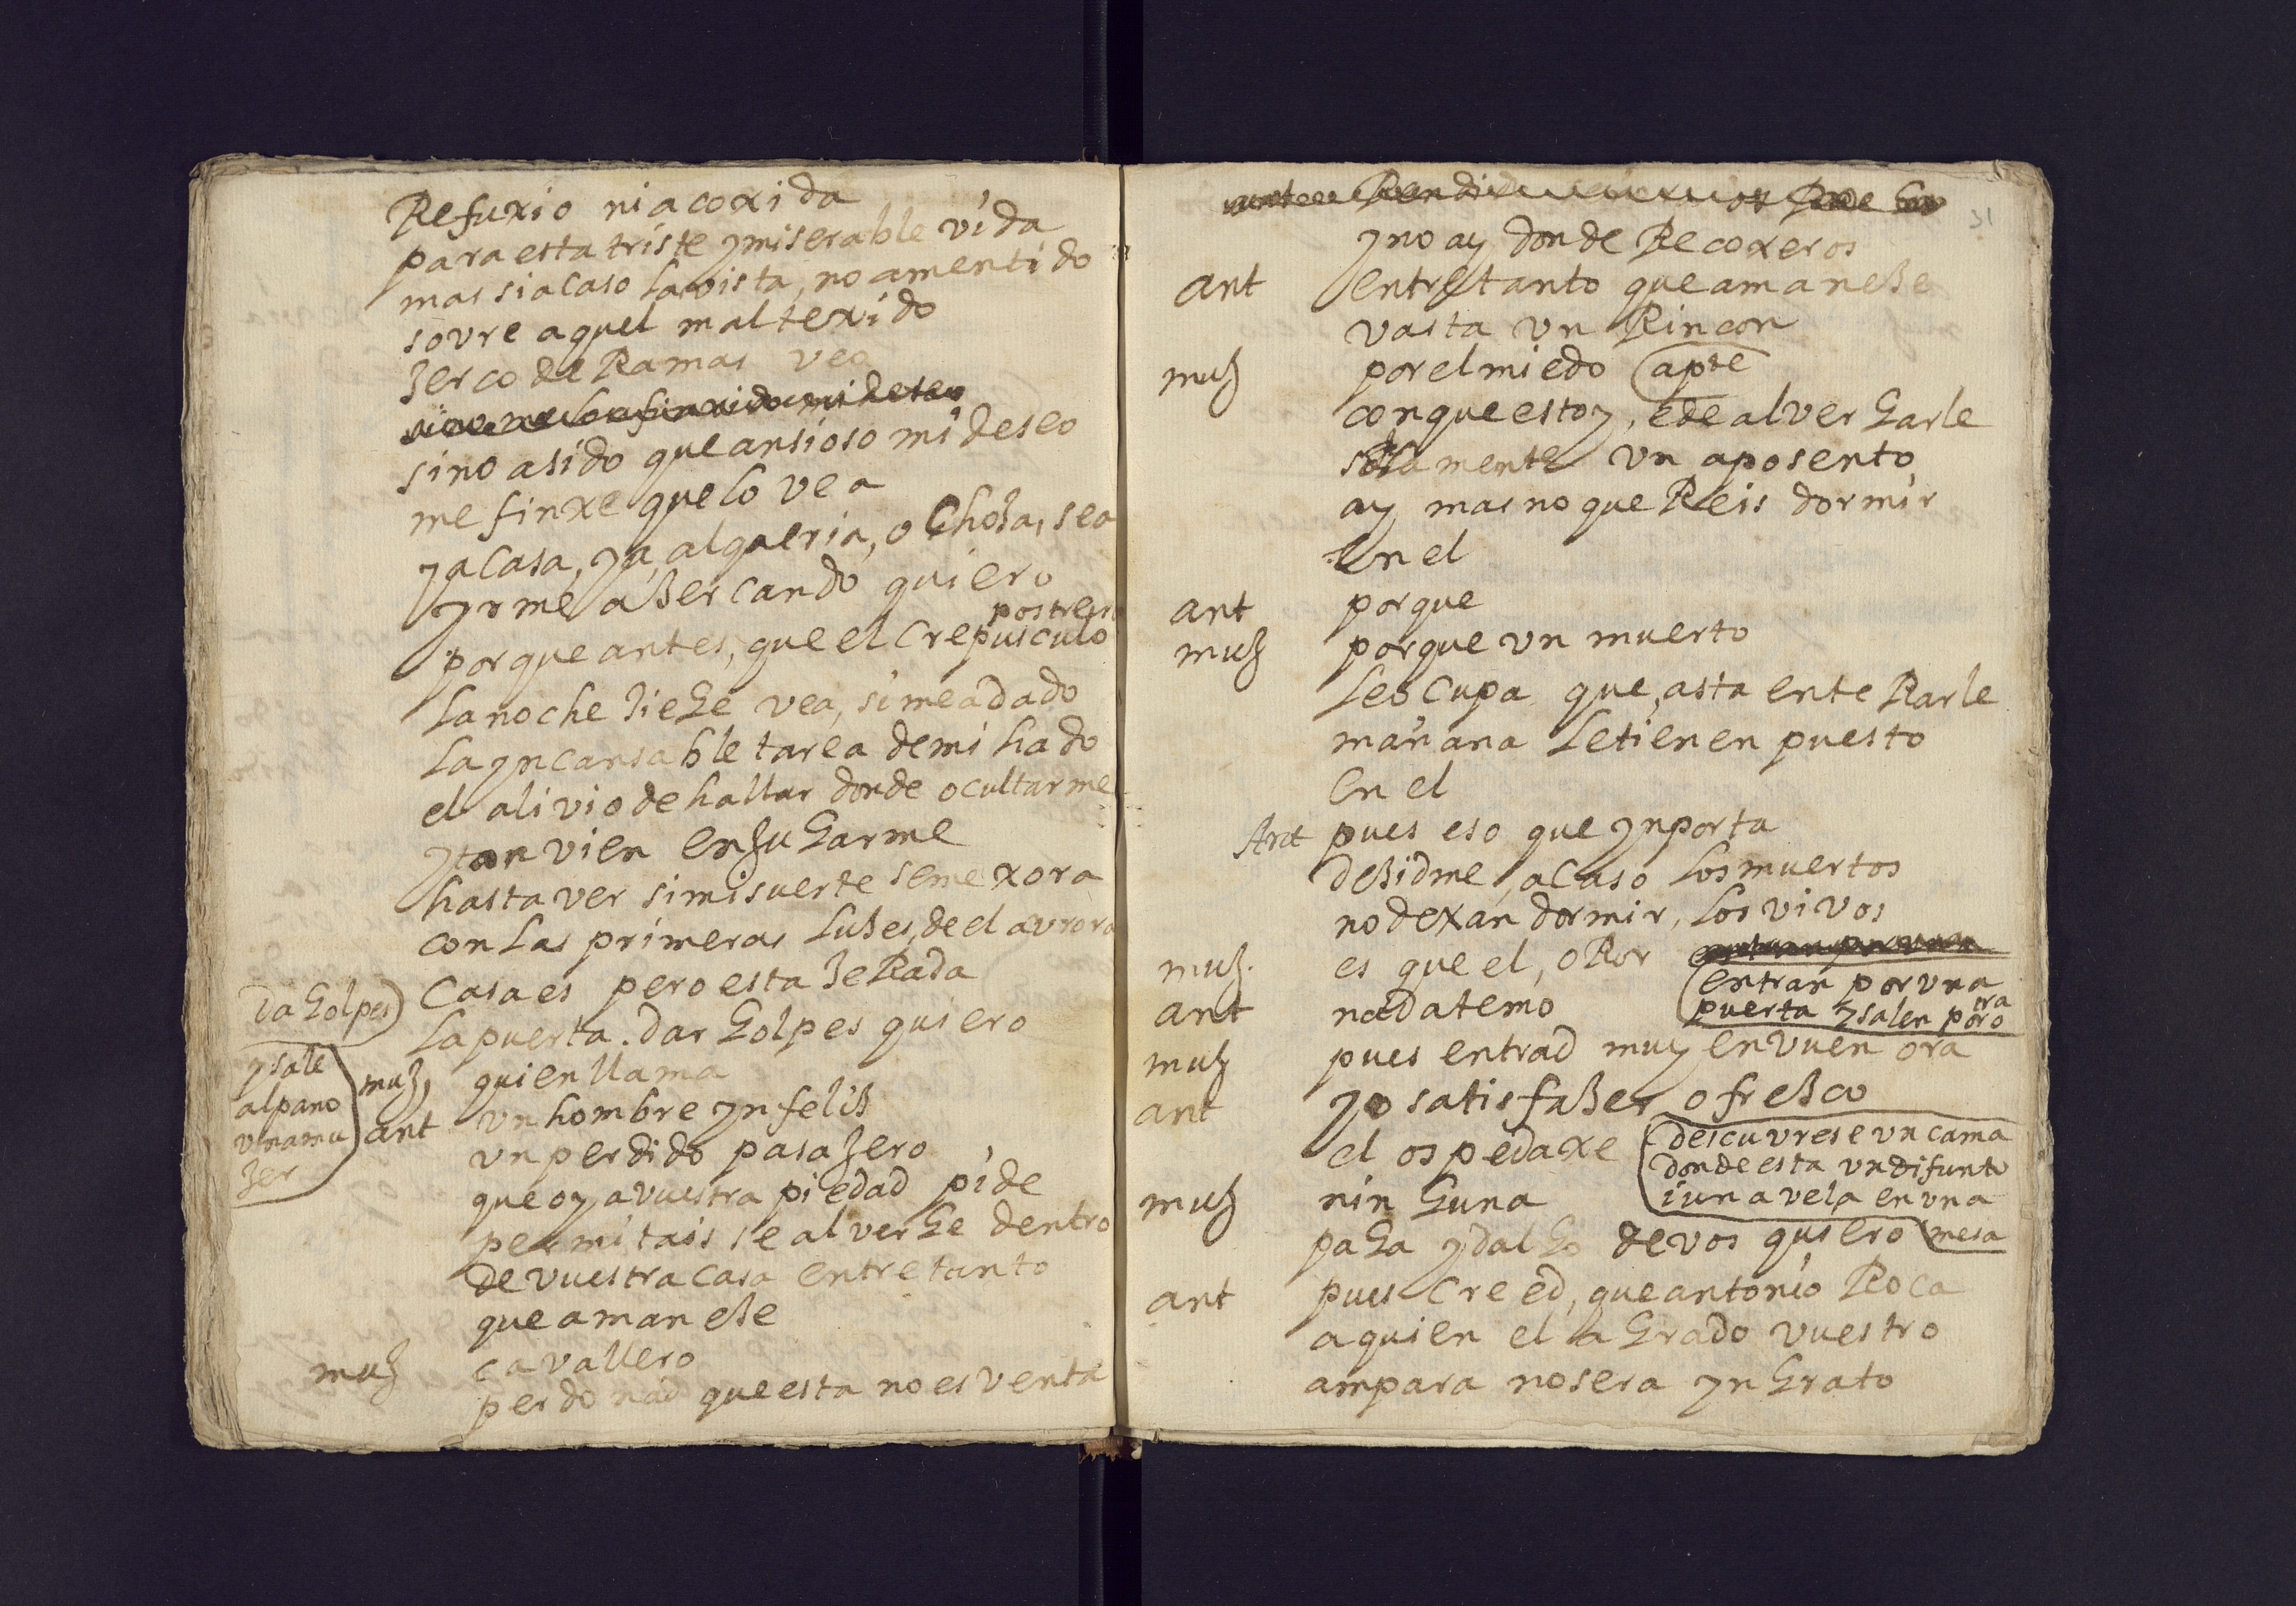 Refuxio ni acoxida
para esta triste y miserable vida
mas si acaso la vista, no a mentido
sovre aquel mal texido
zerco de Ramas veo
sino a sido que ansioso mi deseo
me finxe que lo vea
ya casa, ya, alqueria, o choza, sea
yrme azercando quiero
postrero
porque antes, que el crepusculo
la noche ziege vea, si me a dado
la yncansable tarea de mi hado
el alivio de hallar donde ocultarme
y tan vien enjugarme
hasta ver si mi suerte se mexora
con las primeras luzes, de el aurora
Casa es pero esta zeRada
da golpes
la puerta. dar golpes quiero
y sale
al pano
una mu
jer
muj, quien llama
ant un hombre ynfeliz
un perdido pasajero
que oy a vuestra piedad pide
permitais se alverge dentro
de vuestra casa entretanto
que amaneze
muj cavallero
perdonad que esta no es venta
31
y no ay donde Recoxeros
ant entretanto que amaneze
vasta un Rincon
muj por el miedo (apte
con que estoy, e de alvergarle
solamente un aposento
ay mas no queReis dormir
en el
ant porque
muj porque un muerto
le ocupa que, asta enteRarle
mañana le tienen puesto
en el
Ant pues eso que ynporta
dezidme, acaso los muertos
no dexan dormir, los vivos
muj. es que el, oRor
entran por una
puerta y salen por otra
ant nada temo
muj pues entrad muy en vuen ora
ant yo satisfazer ofrezco
el ospedaxe
descuvrese un cama
donde esta un difunto
i una vela en una
mesa
muj ninguna
paga ydalgo de vos quiero
ant pues creed, que antonio Roca
a quien el agrado vuestro
ampara no sera yngrato